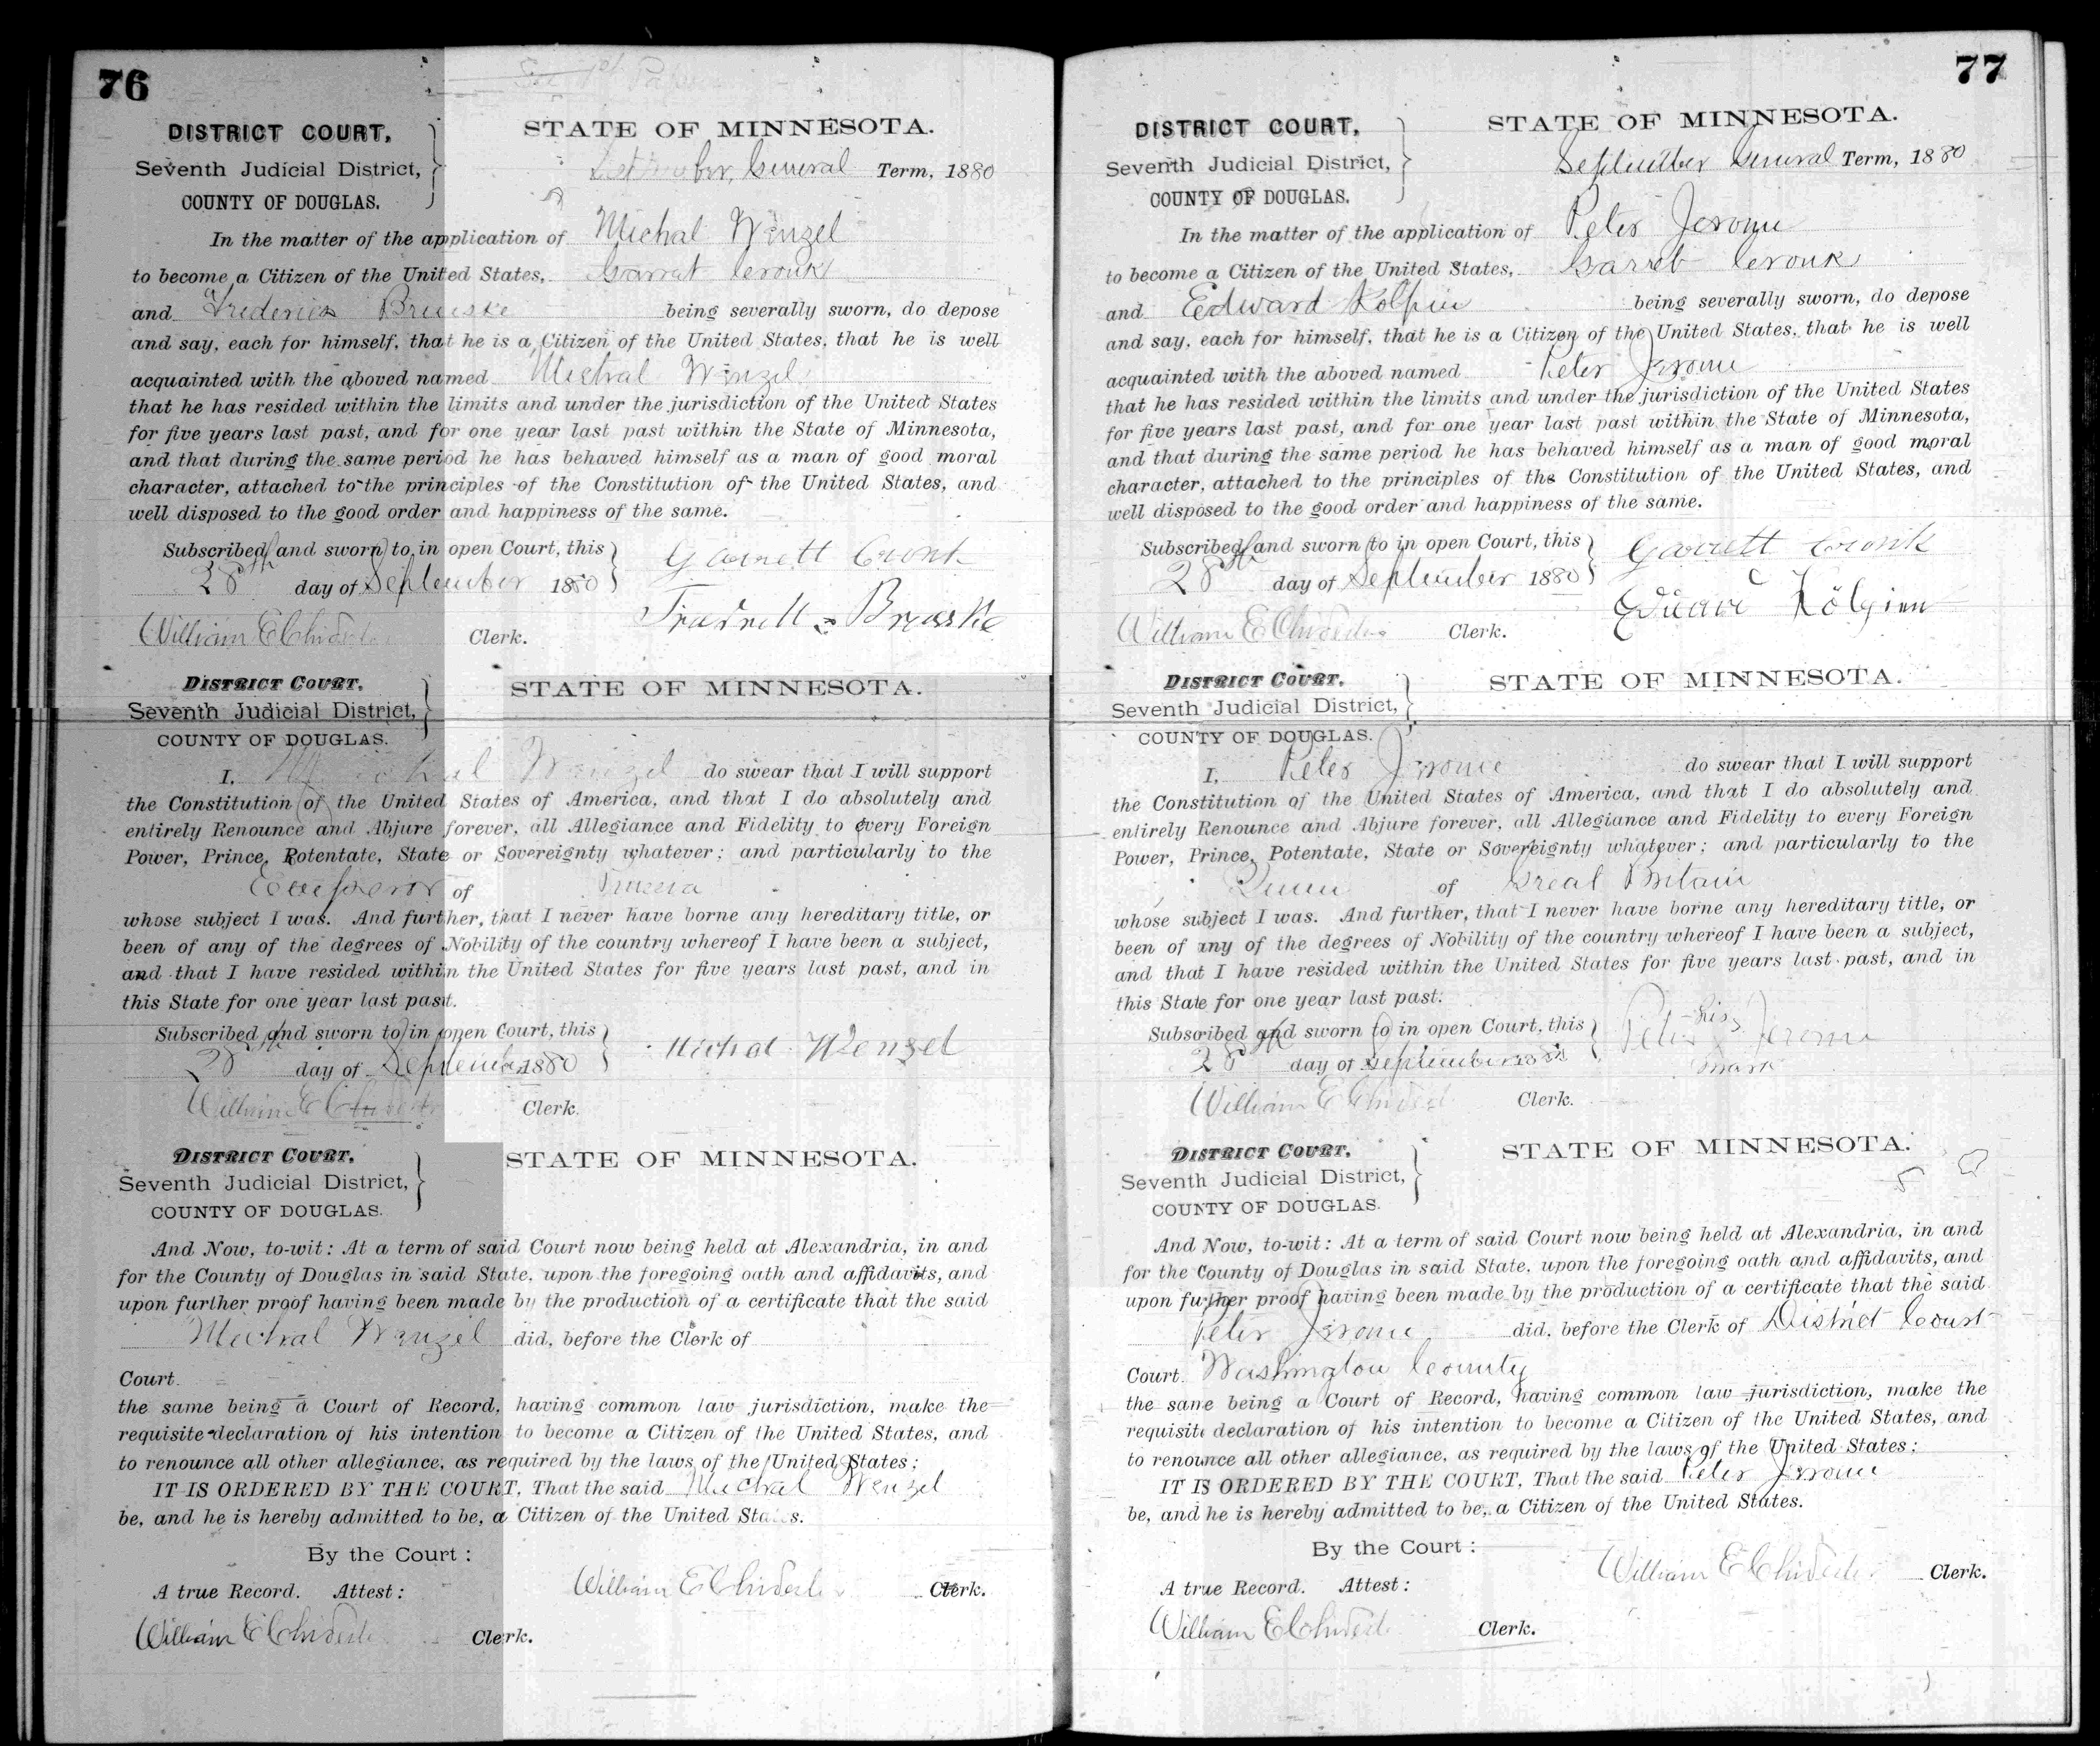 76
See 1st Paper
DISTRICT COURT,
Seventh Judicial District,
COUNTY OF DOUGLAS.
STATE OF MINNESOTA.
September General Term, 1880
In the matter of the application of Michal Wenzel
to become a Citizen of the United States, Garrat Cronk
and Frederick being severally sworn, do depose
and say, each for himself, that he is a Citizen of the United States, that he is well
acquainted with the aboved named Michal Wenzel
that he has resided within the limits and under the jurisdiction of the United States
for five years last past, and for one year last past within the State of Minnesota,
and that during the same period he has behaved himself as a man of good moral
character, attached to the principles of the Constitution of the United States, and
well disposed to the good order and happiness of the same.
Subscribed and sworn to in open Court, this
28th day of September 1880
Garrett Cronk
William E Chidester Clerk.
DISTRICT COURT,
Seventh Judicial District,
COUNTY OF DOUGLAS.
STATE OF MINNESOTA.
I, Michal Wenzel do swear that I will support
the Constitution of the United States of America, and that I do absolutely and
entirely Renounce and Abjure forever, all Allegiance and Fidelity to every Foreign
Power, Prince, Potentate, State or Sovereignty whatever; and particularly to the
Emperor of
whose subject I was. And further, that I never have borne any hereditary title, or
been of any of the degrees of Nobility of the country whereof I have been a subject,
and that I have resided within the United States for five years last past, and in
this State for one year last past.
Subscribed and sworn to in open Court, this
28th day of September 1880
Michal Wenzel
William E Chidester Clerk.
DISTRICT COURT,
Seventh Judicial District,
COUNTY OF DOUGLAS.
STATE OF MINNESOTA.
And Now, to-wit: At a term of said Court now being held at Alexandria, in and
for the County of Douglas in said State, upon the foregoing oath and affidavits, and
upon further proof having been made by the production of a certificate that the said
Michal Wenzel did, before the Clerk of
Court
the same being a Court of Record, having common law jurisdiction, make the
requisite declaration of his intention to become a Citizen of the United States, and
to renounce all other allegiance, as required by the laws of the United States;
IT IS ORDERED BY THE COURT, That the said Michal Wenzel
be, and he is hereby admitted to be, a Citizen of the United States.
By the Court:
William E Chidester Clerk.
A true Record. Attest:
William E Chidester Clerk.
77
DISTRICT COURT,
Seventh Judicial District,
COUNTY OF DOUGLAS.
STATE OF MINNESOTA.
September General Term, 1880
In the matter of the application of Peter Jerome
to become a Citizen of the United States, Garreb Cronk
and Edward Kolpin being severally sworn, do depose
and say, each for himself, that he is a Citizen of the United States, that he is well
acquainted with the aboved named Peter Jerome
that he has resided within the limits and under the jurisdiction of the United States
for five years last past, and for one year last past within the State of Minnesota,
and that during the same period he has behaved himself as a man of good moral
character, attached to the principles of the Constitution of the United States, and
well disposed to the good order and happiness of the same.
Subscribed and sworn to in open Court, this
28th day of September 1880
Garrett Cronk
William E Chidester Clerk.
DISTRICT COURT,
Seventh Judicial District,
COUNTY OF DOUGLAS.
STATE OF MINNESOTA.
I, Peter Jerome do swear that I will support
the Constitution of the United States of America, and that I do absolutely and
entirely Renounce and Abjure forever, all Allegiance and Fidelity to every Foreign
Power, Prince, Potentate, State or Sovereignty whatever; and particularly to the
Queen of Great Britain
whose subject I was. And further, that I never have borne any hereditary title, or
been of any of the degrees of Nobility of the country whereof I have been a subject,
and that I have resided within the United States for five years last past, and in
this State for one year last past.
Subscribed and sworn to in open Court, this
28th day of September 1880
Peter his x mark Jerome
William E Chidester Clerk.
DISTRICT COURT,
Seventh Judicial District,
COUNTY OF DOUGLAS.
STATE OF MINNESOTA.
And Now, to-wit: At a term of said Court now being held at Alexandria, in and
for the County of Douglas in said State, upon the foregoing oath and affidavits, and
upon further proof having been made by the production of a certificate that the said
Peter Jerome did, before the Clerk of District Court
Court Washington County
the same being a Court of Record, having common law jurisdiction, make the
requisite declaration of his intention to become a Citizen of the United States, and
to renounce all other allegiance, as required by the laws of the United States;
IT IS ORDERED BY THE COURT, That the said Peter Jerome
be, and he is hereby admitted to be, a Citizen of the United States.
By the Court:
William E Chidester Clerk.
A true Record. Attest:
William E Chidester Clerk.